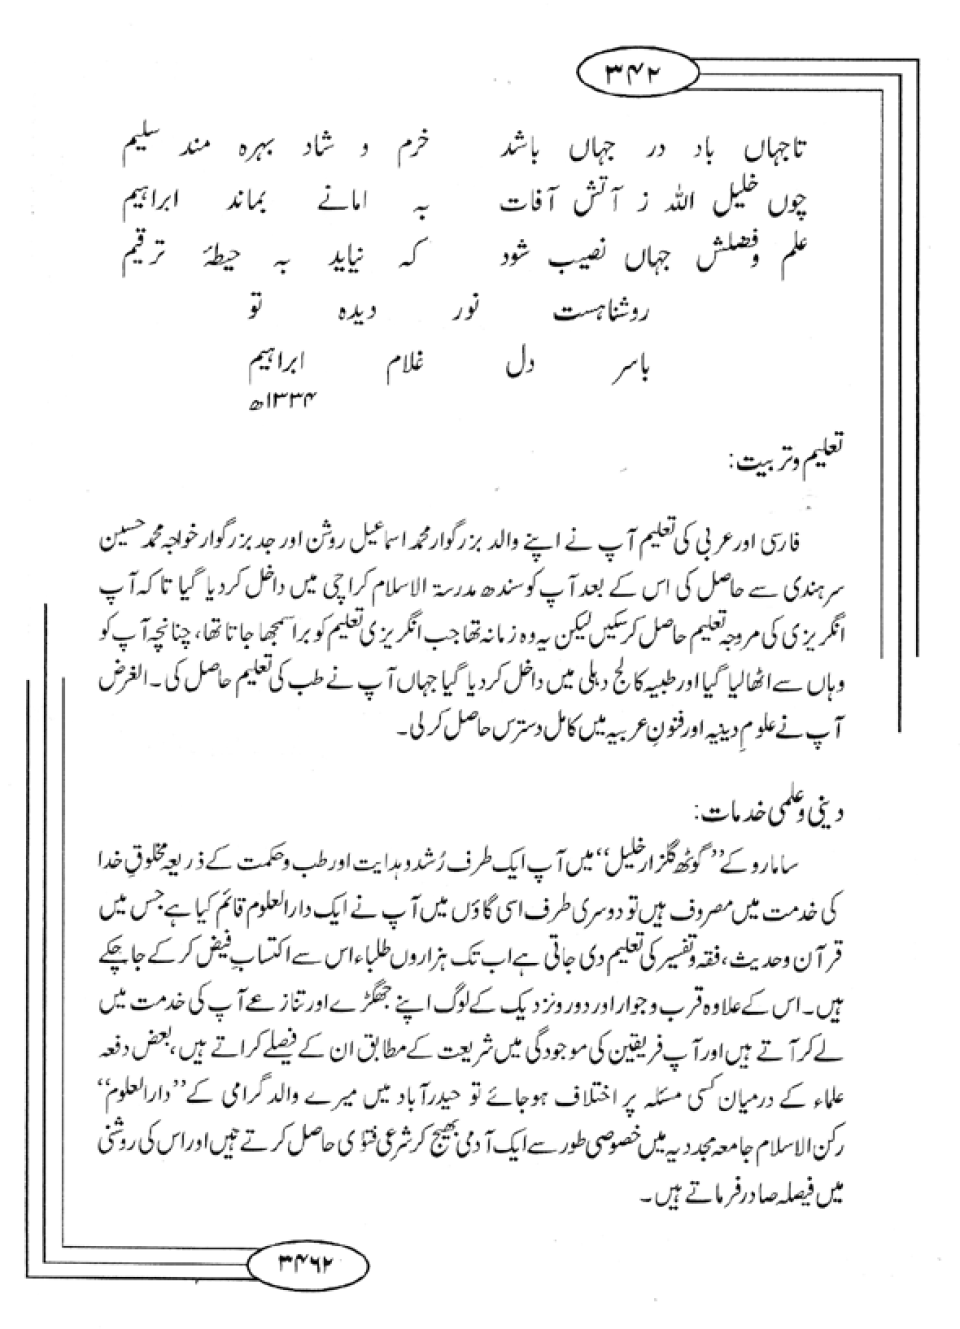 ۳۴۲
تاجہاں باد در جہاں باشد خرم و شاد بہرہ مند سلیم
چوں خلیل اللہ ز آتش آفات بہ امانے بماند ابراہیم
علم وفضلش جہاں نصیب شود کہ نیاید بہ حیطۂ ترقیم
روشناہست نور دیدہ تو
باسر دل غلام ابراہیم
۱۳۳۴ھ
تعلیم وتربیت:
فارسی اور عربی کی تعلیم آپ نے اپنے والد بزرگوار محمد اسماعیل روشن اور جد بزرگوار خواجہ محمد حسین
سرہندی سے حاصل کی اس کے بعد آپ کو سندھ مدرسۃ الاسلام کراچی میں داخل کردیا گیا تاکہ آپ
انگریزی کی مروجہ تعلیم حاصل کرسکیں لیکن یہ وہ زمانہ تھا جب انگریزی تعلیم کو برا سمجھا جاتا تھا، چنانچہ آپ کو
وہاں سے اٹھالیا گیا اور طبیہ کالج دہلی میں داخل کردیا گیا جہاں آپ نے طب کی تعلیم حاصل کی۔ الغرض
آپ نے علومِ دینیہ اور فنونِ عربیہ میں کامل دسترس حاصل کرلی۔
دینی وعلمی خدمات:
سامارو کے ”گوٹھ گلزار خلیل“ میں آپ ایک طرف رُشد وہدایت اور طب وحکمت کے ذریعہ مخلوقِ خدا
کی خدمت میں مصروف ہیں تو دوسری طرف اسی گاؤں میں آپ نے ایک دارالعلوم قائم کیا ہے جس میں
قرآن وحدیث، فقہ وتفسیر کی تعلیم دی جاتی ہے اب تک ہزاروں طلباء اس سے اکتسابِ فیض کرکے جاچکے
ہیں۔ اس کے علاوہ قرب وجوار اور دور ونزدیک کے لوگ اپنے جھگڑے اور تنازعے آپ کی خدمت میں
لے کر آتے ہیں اور آپ فریقین کی موجودگی میں شریعت کے مطابق ان کے فیصلے کراتے ہیں، بعض دفعہ
علماء کے درمیان کسی مسئلہ پر اختلاف ہوجائے تو حیدرآباد میں میرے والد گرامی کے ”دارالعلوم“
رکن الاسلام جامعہ مجددیہ میں خصوصی طور سے ایک آدمی بھیج کر شرعی فتوٰی حاصل کرتے ہیں اور اس کی روشنی
میں فیصلہ صادر فرماتے ہیں۔
۳۴۶۲